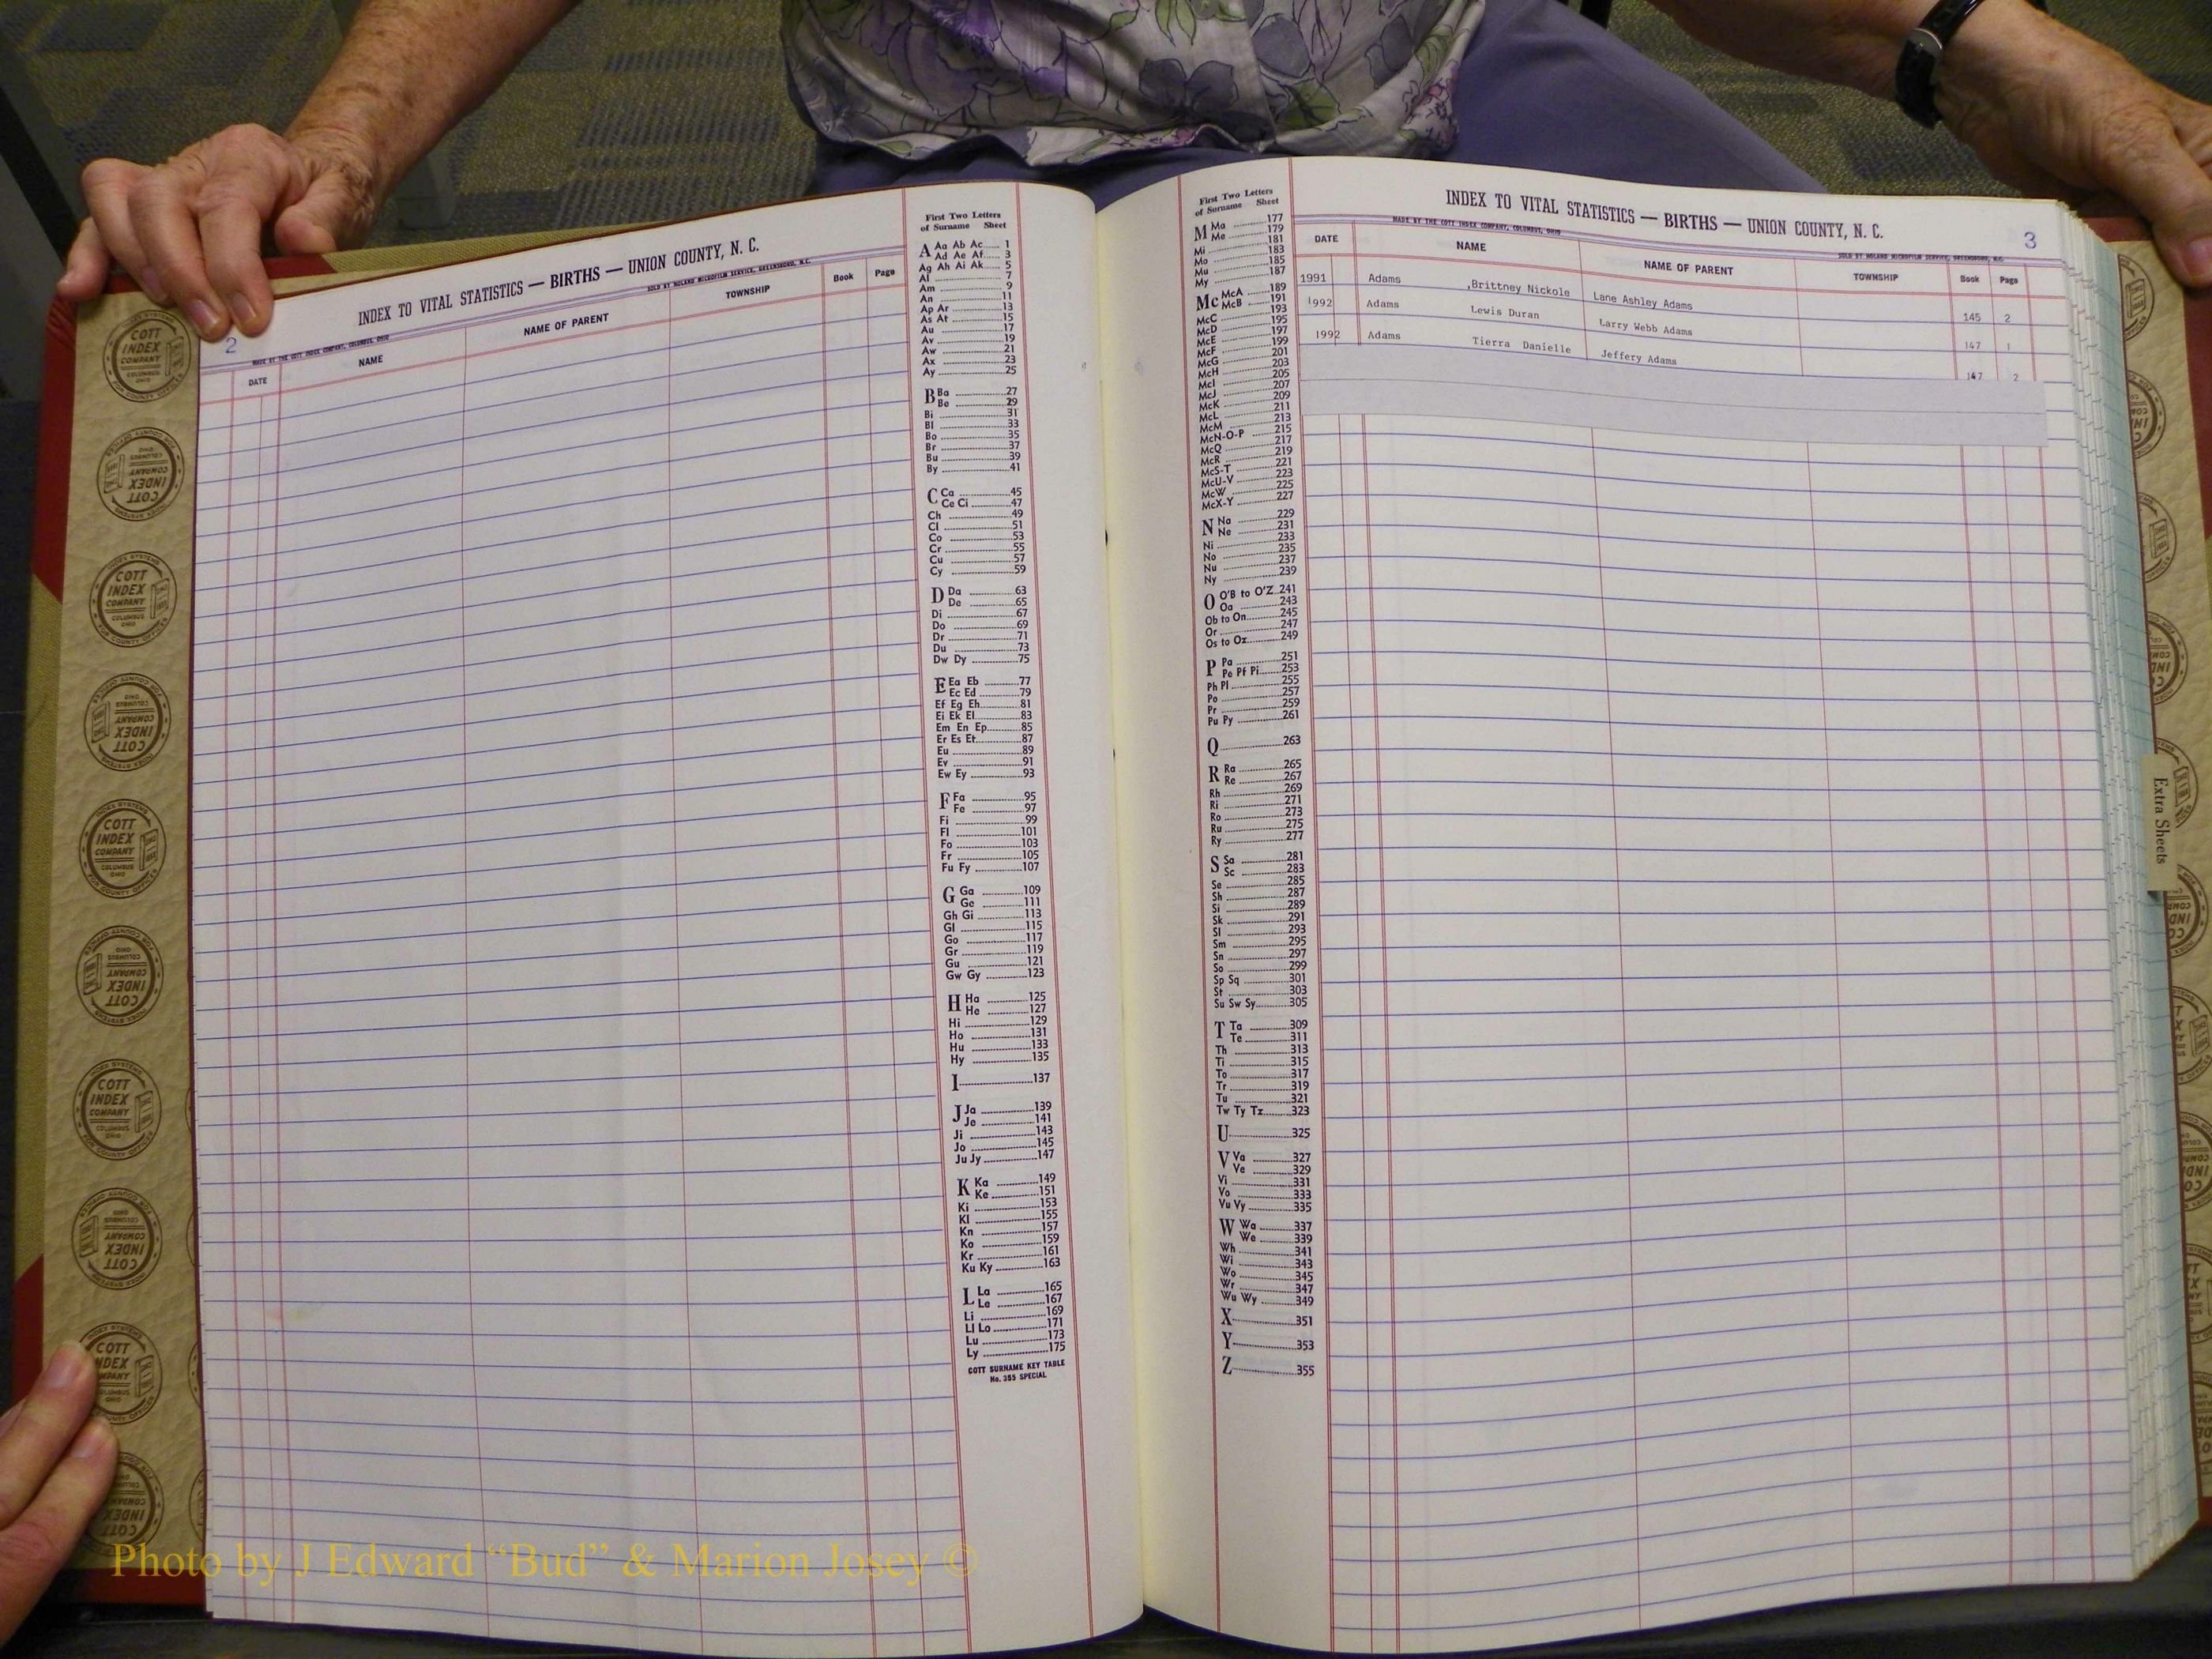 2
INDEX TO VITAL STATISTICS — BIRTHS — UNION COUNTY, N. C.
MADE BY THE COTT INDEX COMPANY, COLUMBUS, OHIO
SOLD BY NOLAND MICROFILM SERVICE, GREENSBORO, N.C.
DATE NAME NAME OF PARENT TOWNSHIP Book Page
First Two Letters
of Surname Sheet
A Aa Ab Ac 1
Ad Ae Af 3
Ag Ah Ai Ak 5
Al 7
Am 9
An 11
Ap Ar 13
As At 15
Au 17
Av 19
Aw 21
Ax 23
Ay 25
B Ba 27
Be 29
Bi 31
Bl 33
Bo 35
Br 37
Bu 39
By 41
C Ca 45
Ce Ci 47
Ch 49
Cl 51
Co 53
Cr 55
Cu 57
Cy 59
D Da 63
De 65
Di 67
Do 69
Dr 71
Du 73
Dw Dy 75
E Ea Eb 77
Ec Ed 79
Ef Eg Eh 81
Ei Ek El 83
Em En Ep 85
Er Es Et 87
Eu 89
Ev 91
Ew Ey 93
F Fa 95
Fe 97
Fi 99
Fl 101
Fo 103
Fr 105
Fu Fy 107
G Ga 109
Ge 111
Gh Gi 113
Gl 115
Go 117
Gr 119
Gu 121
Gw Gy 123
H Ha 125
He 127
Hi 129
Ho 131
Hu 133
Hy 135
I 137
J Ja 139
Je 141
Ji 143
Jo 145
Ju Jy 147
K Ka 149
Ke 151
Ki 153
Kl 155
Kn 157
Ko 159
Kr 161
Ku Ky 163
L La 165
Le 167
Li 169
Ll Lo 171
Lu 173
Ly 175
COTT SURNAME KEY TABLE
No. 355 SPECIAL
First Two Letters
of Surname Sheet
M Ma 177
Me 179
Mi 181
Mo 183
Mu 185
My 187
Mc McA 189
McB 191
McC 193
McD 195
McE 197
McF 199
McG 201
McH 203
McI 205
McJ 207
McK 209
McL 211
McM 213
McN-O-P 215
McQ 217
McR 219
McS-T 221
McU-V 223
McW 225
McX-Y 227
N Na 229
Ne 231
Ni 233
No 235
Nu 237
Ny 239
O O'B to O'Z 241
Oa 243
Ob to On 245
Or 247
Os to Oz 249
P Pa 251
Pe Pf Pi 253
Ph Pl 255
Po 257
Pr 259
Pu Py 261
Q 263
R Ra 265
Re 267
Rh 269
Ri 271
Ro 273
Ru 275
Ry 277
S Sa 281
Sc 283
Se 285
Sh 287
Si 289
Sk 291
Sl 293
Sm 295
Sn 297
So 299
Sp Sq 301
St 303
Su Sw Sy 305
T Ta 309
Te 311
Th 313
Ti 315
To 317
Tr 319
Tu 321
Tw Ty Tz 323
U 325
V Va 327
Ve 329
Vi 331
Vo 333
Vu Vy 335
W Wa 337
We 339
Wh 341
Wi 343
Wo 345
Wr 347
Wu Wy 349
X 351
Y 353
Z 355
INDEX TO VITAL STATISTICS — BIRTHS — UNION COUNTY, N. C.
3
MADE BY THE COTT INDEX COMPANY, COLUMBUS, OHIO
SOLD BY NOLAND MICROFILM SERVICE, GREENSBORO, N.C.
DATE NAME NAME OF PARENT TOWNSHIP Book Page
1991 Adams ,Brittney Nickole Lane Ashley Adams 145 2
1992 Adams Lewis Duran Larry Webb Adams 147 1
1992 Adams Tierra Danielle Jeffery Adams 147 2
Extra Sheets
COTT INDEX COMPANY COLUMBUS OHIO
INDEX SYSTEMS FOR COUNTY OFFICES
Photo by J Edward “Bud” & Marion Josey ©